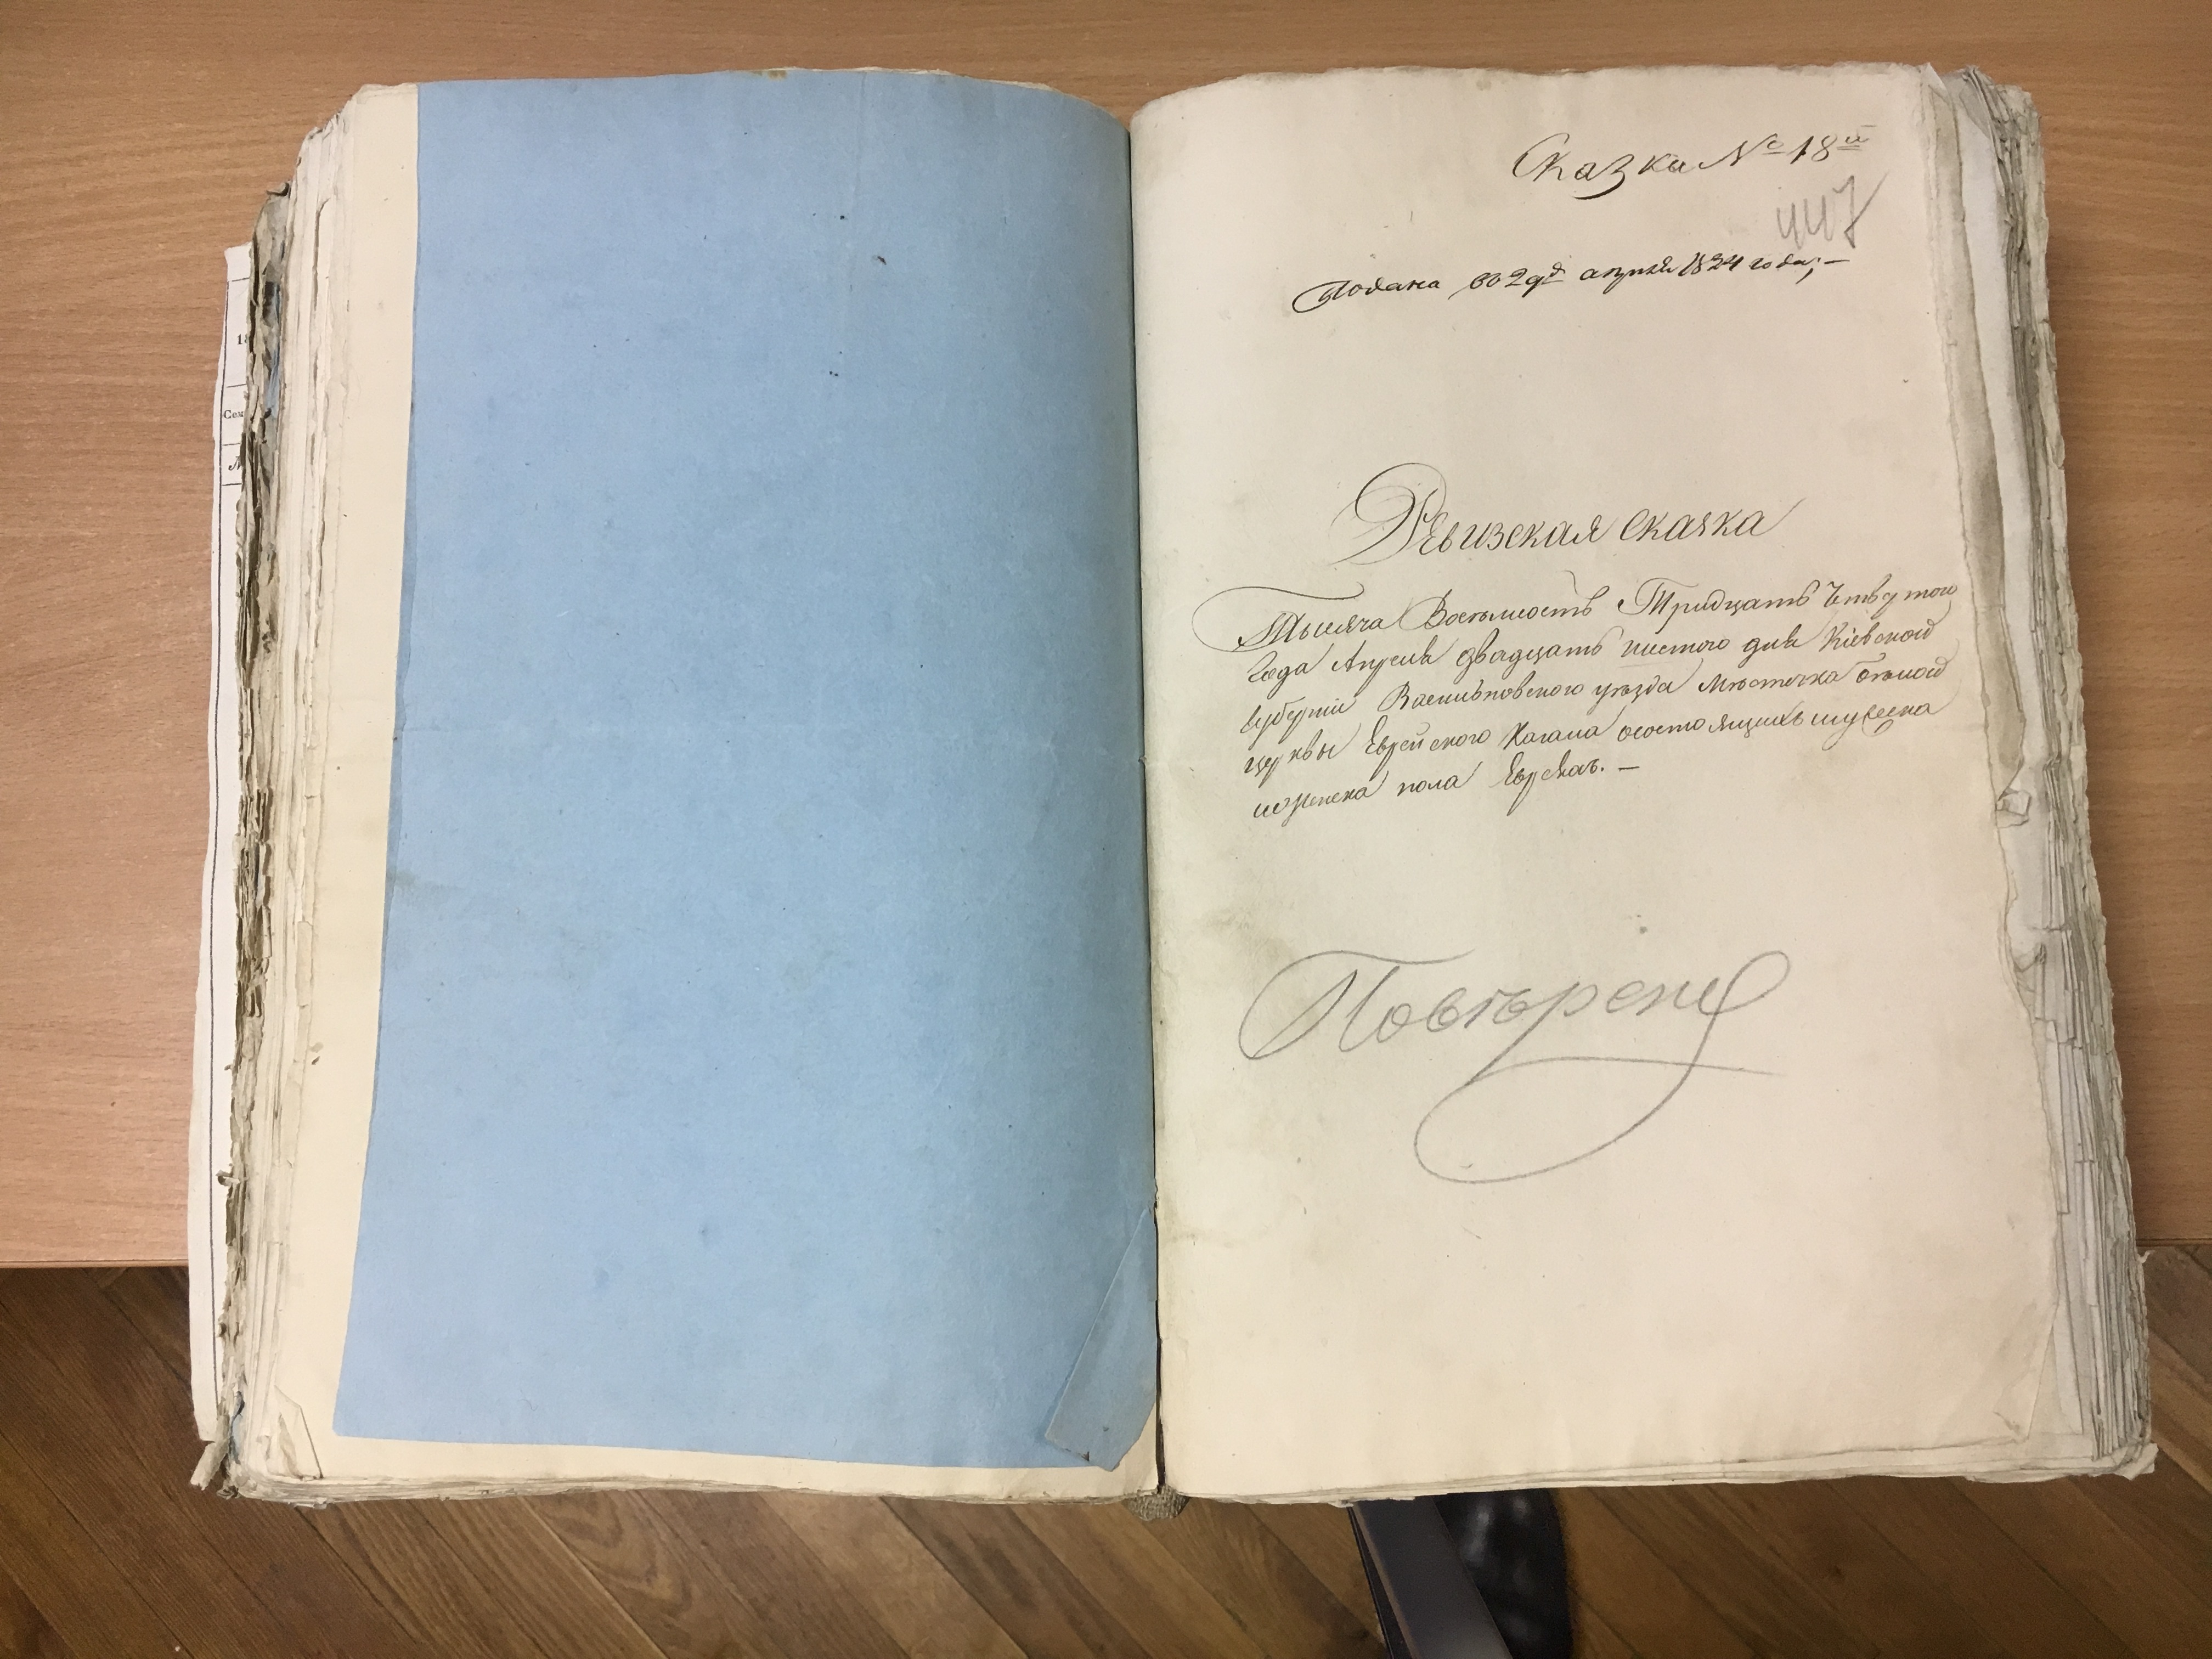 18
Сем
Сказка № 18й
447
Подана въ 29д апреля 1824 года;—
Ревизская сказка
Тысяча Восемьсотъ Тридцать Четвертого
Года Апреля двадцать шестого дня Кіевской
Губерніи Васильковского уѣзда мѣстечка бѣлой
церквы Еврейского Кагала осостоящихъ мужеска
и женска пола Евреяхъ.—
Повѣрену